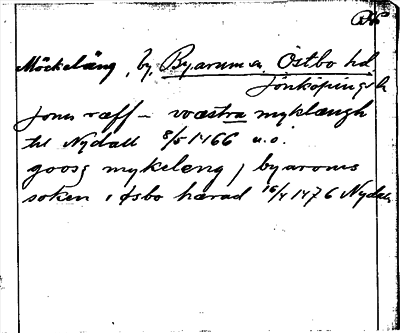 Möckeläng, by, Byarums sn Östbo hd
Jönköpings l
jönis ræff – wæstra myklængh
til Nydala 8/5 1466 u.o.
goosz mykeleng j byaroms
soken i østbo hærad 16/4 1476 Nydala